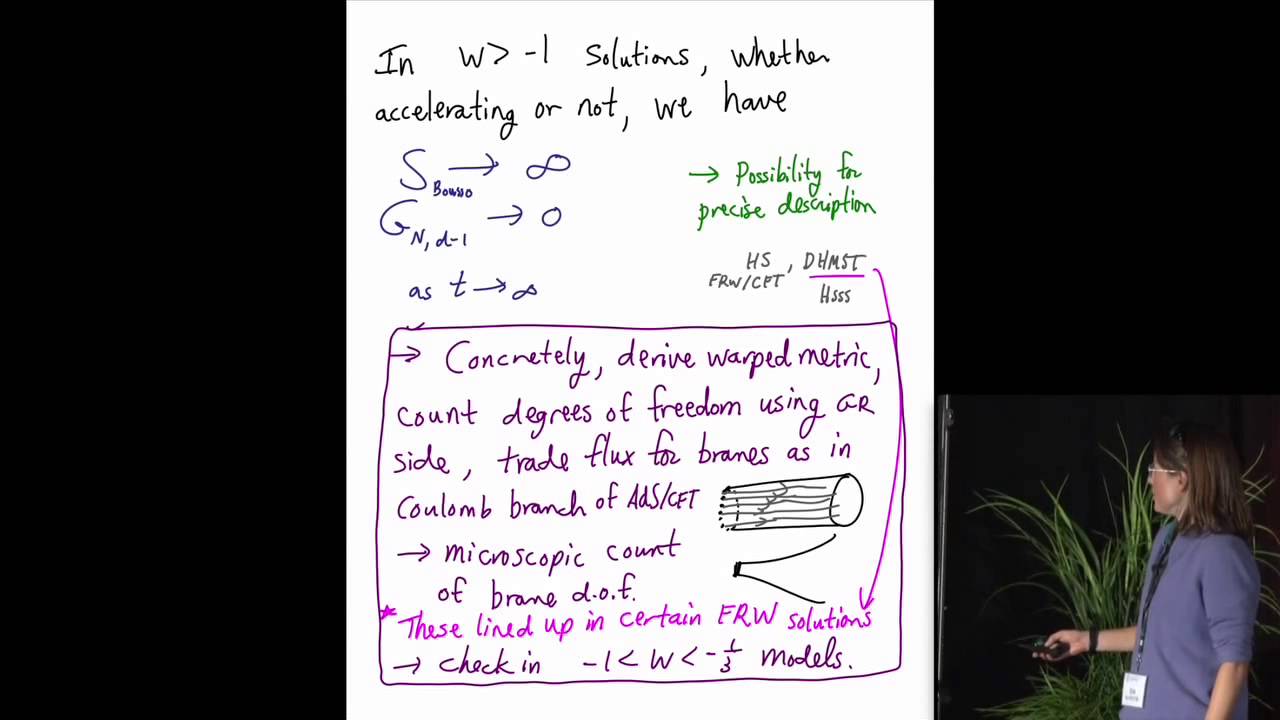 In w > -1 Solutions, whether
accelerating or not, we have
S_Bousso → ∞
G_N,d-1 → 0
as t → ∞
→ Possibility for
precise description
HS , DHMST
FRW/CFT
HSSS
→ Concretely, derive warped metric,
count degrees of freedom using GR
side, trade flux for branes as in
Coulomb branch of AdS/CFT
→ microscopic count
of brane d.o.f.
* These lined up in certain FRW solutions
→ check in -1 < w < -1/3 models.